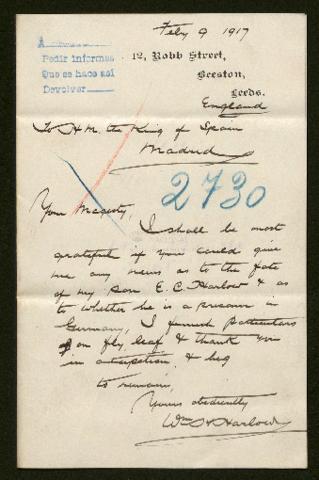 Feby 9 1917
A
Pedir informes
Que se hace así
Devolver
12, Robb Street,
Beeston,
Leeds.
England
To H M. the King of Spain
Madrid
2730
Your Magesty,
I shall be most
grateful if you could give
me any news as to the fate
of my son E. C. Harlow & as
to whether he is a prisoner in
Germany, I furnish particulars
on fly leaf & thank you
in anticipation, & beg
to remain,
Yours obediently
Wm H Harlow